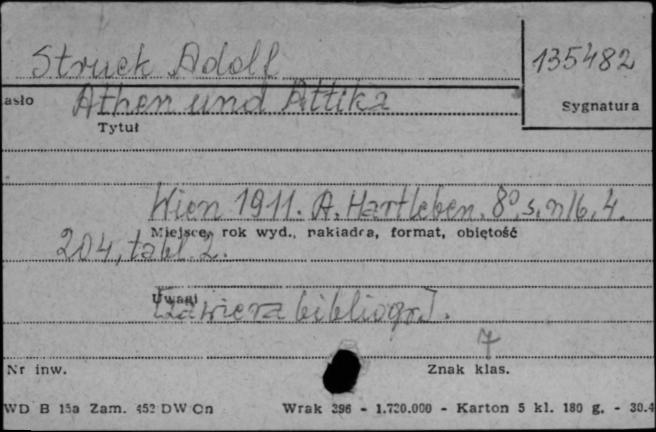 Struck Adolf
135482
asło
Athen und Attika
Sygnatura
Tytuł
Wien 1911. A. Hartleben. 8°, s. nlb. 4.
Miejsce, rok wyd., nakładca, format, objętość
204, tabl. 2.
Uwagi
[Zawiera bibliogr.].
7
Nr inw.
Znak klas.
WD B 15a Zam. 452 DW Cn Wrak 396 - 1.720.000 - Karton 5 kl. 180 g. - 30.4